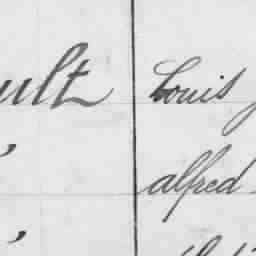 ult Louis
" alfred
"